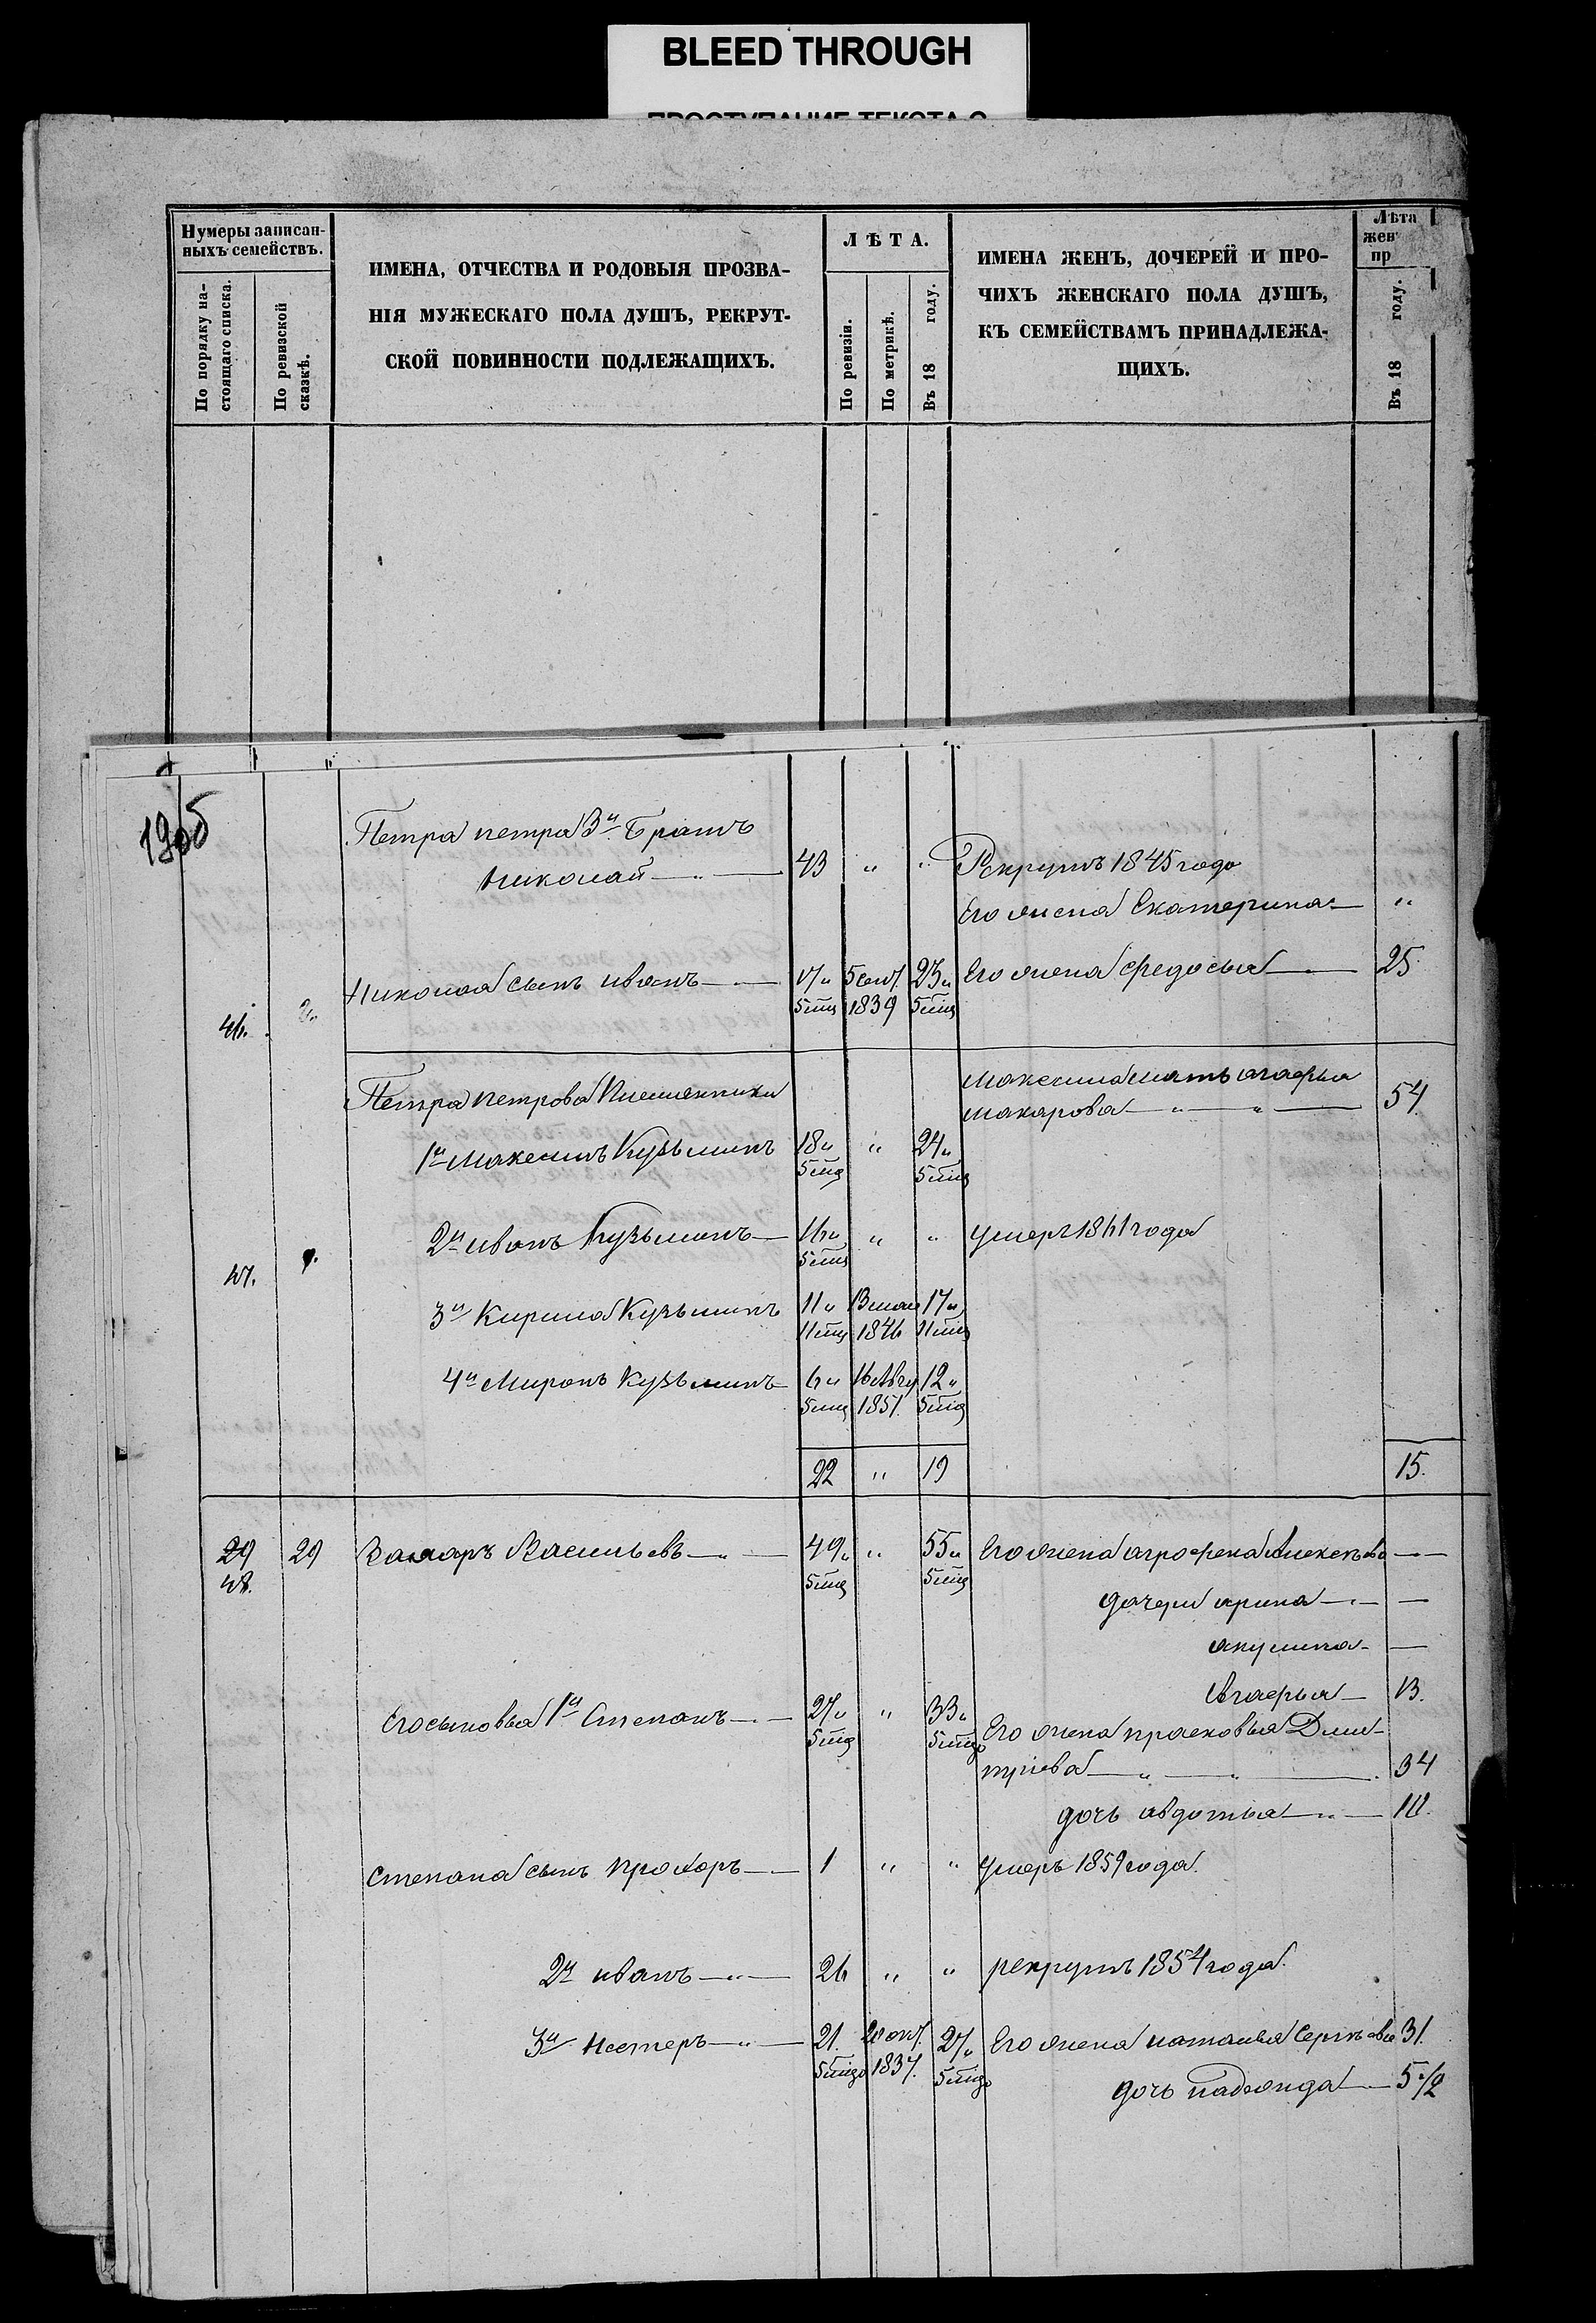 BLEED THROUGH
ПРОСТУПАНИЕ ТЕКСТА С
Нумеры записан-
ныхъ семействъ.
По порядку на-
стоящаго списка.
По ревизской
сказкѣ.
ИМЕНА, ОТЧЕСТВА И РОДОВЫЯ ПРОЗВА-
НІЯ МУЖЕСКАГО ПОЛА ДУШЪ, РЕКРУТ-
СКОЙ ПОВИННОСТИ ПОДЛЕЖАЩИХЪ.
ЛѢТА.
По ревизіи.
По метрикѣ.
Въ 18 году.
ИМЕНА ЖЕНЪ, ДОЧЕРЕЙ И ПРО-
ЧИХЪ ЖЕНСКАГО ПОЛА ДУШЪ,
КЪ СЕМЕЙСТВАМЪ ПРИНАДЛЕЖА-
ЩИХЪ.
Лѣта
жен
пр
Въ 18 году.
Петра петра 3й братъ
Николай — " — 43 " " Рекрутъ 1845 года
Его жена Екатерина — "
46. Николая сынъ иванъ — 17" 5 сент. 23" Его жена федосья — 25
5 мца 1839 5 мца
Петра петрова племянники
Максима мать агафья
макарова — " — " — 54
1й Максимъ Кузьминъ 18" " 24"
5 мца 5 мца
47. 2й иванъ Кузьминъ — 16" " " умеръ 1861 года
5 мца
3й Кирила Кузьминъ 11" 17"
11 мца 1846 11 мца
4й Миронъ Кузьминъ — 6" 16 Авгу 12"
5 мца 1851. 5 мца
22 " 19 15.
29 29 Захаръ Васильевъ — " — 49" " 55" Его жена агрофена Алексѣева —
48. 5 мца 5 мца
дочери арина — " — —
акулина — —
Агафья — 13.
Его сыновья 1й Степанъ — 27" " 33"
5 мца 5 мца
Его жена прасковья Дми-
тріева — " — " — 34
дочь авдотья — " —
степана сынъ прохоръ — 1 " " умеръ 1859 года.
2й иванъ — " — 26 " " рекрутъ 1854 года.
3й Нестеръ — " — 21. окт. 27" Его жена наталья Сергѣева 31.
5 мцо 1837. 5 мцо
дочь надежда — 5 1/2